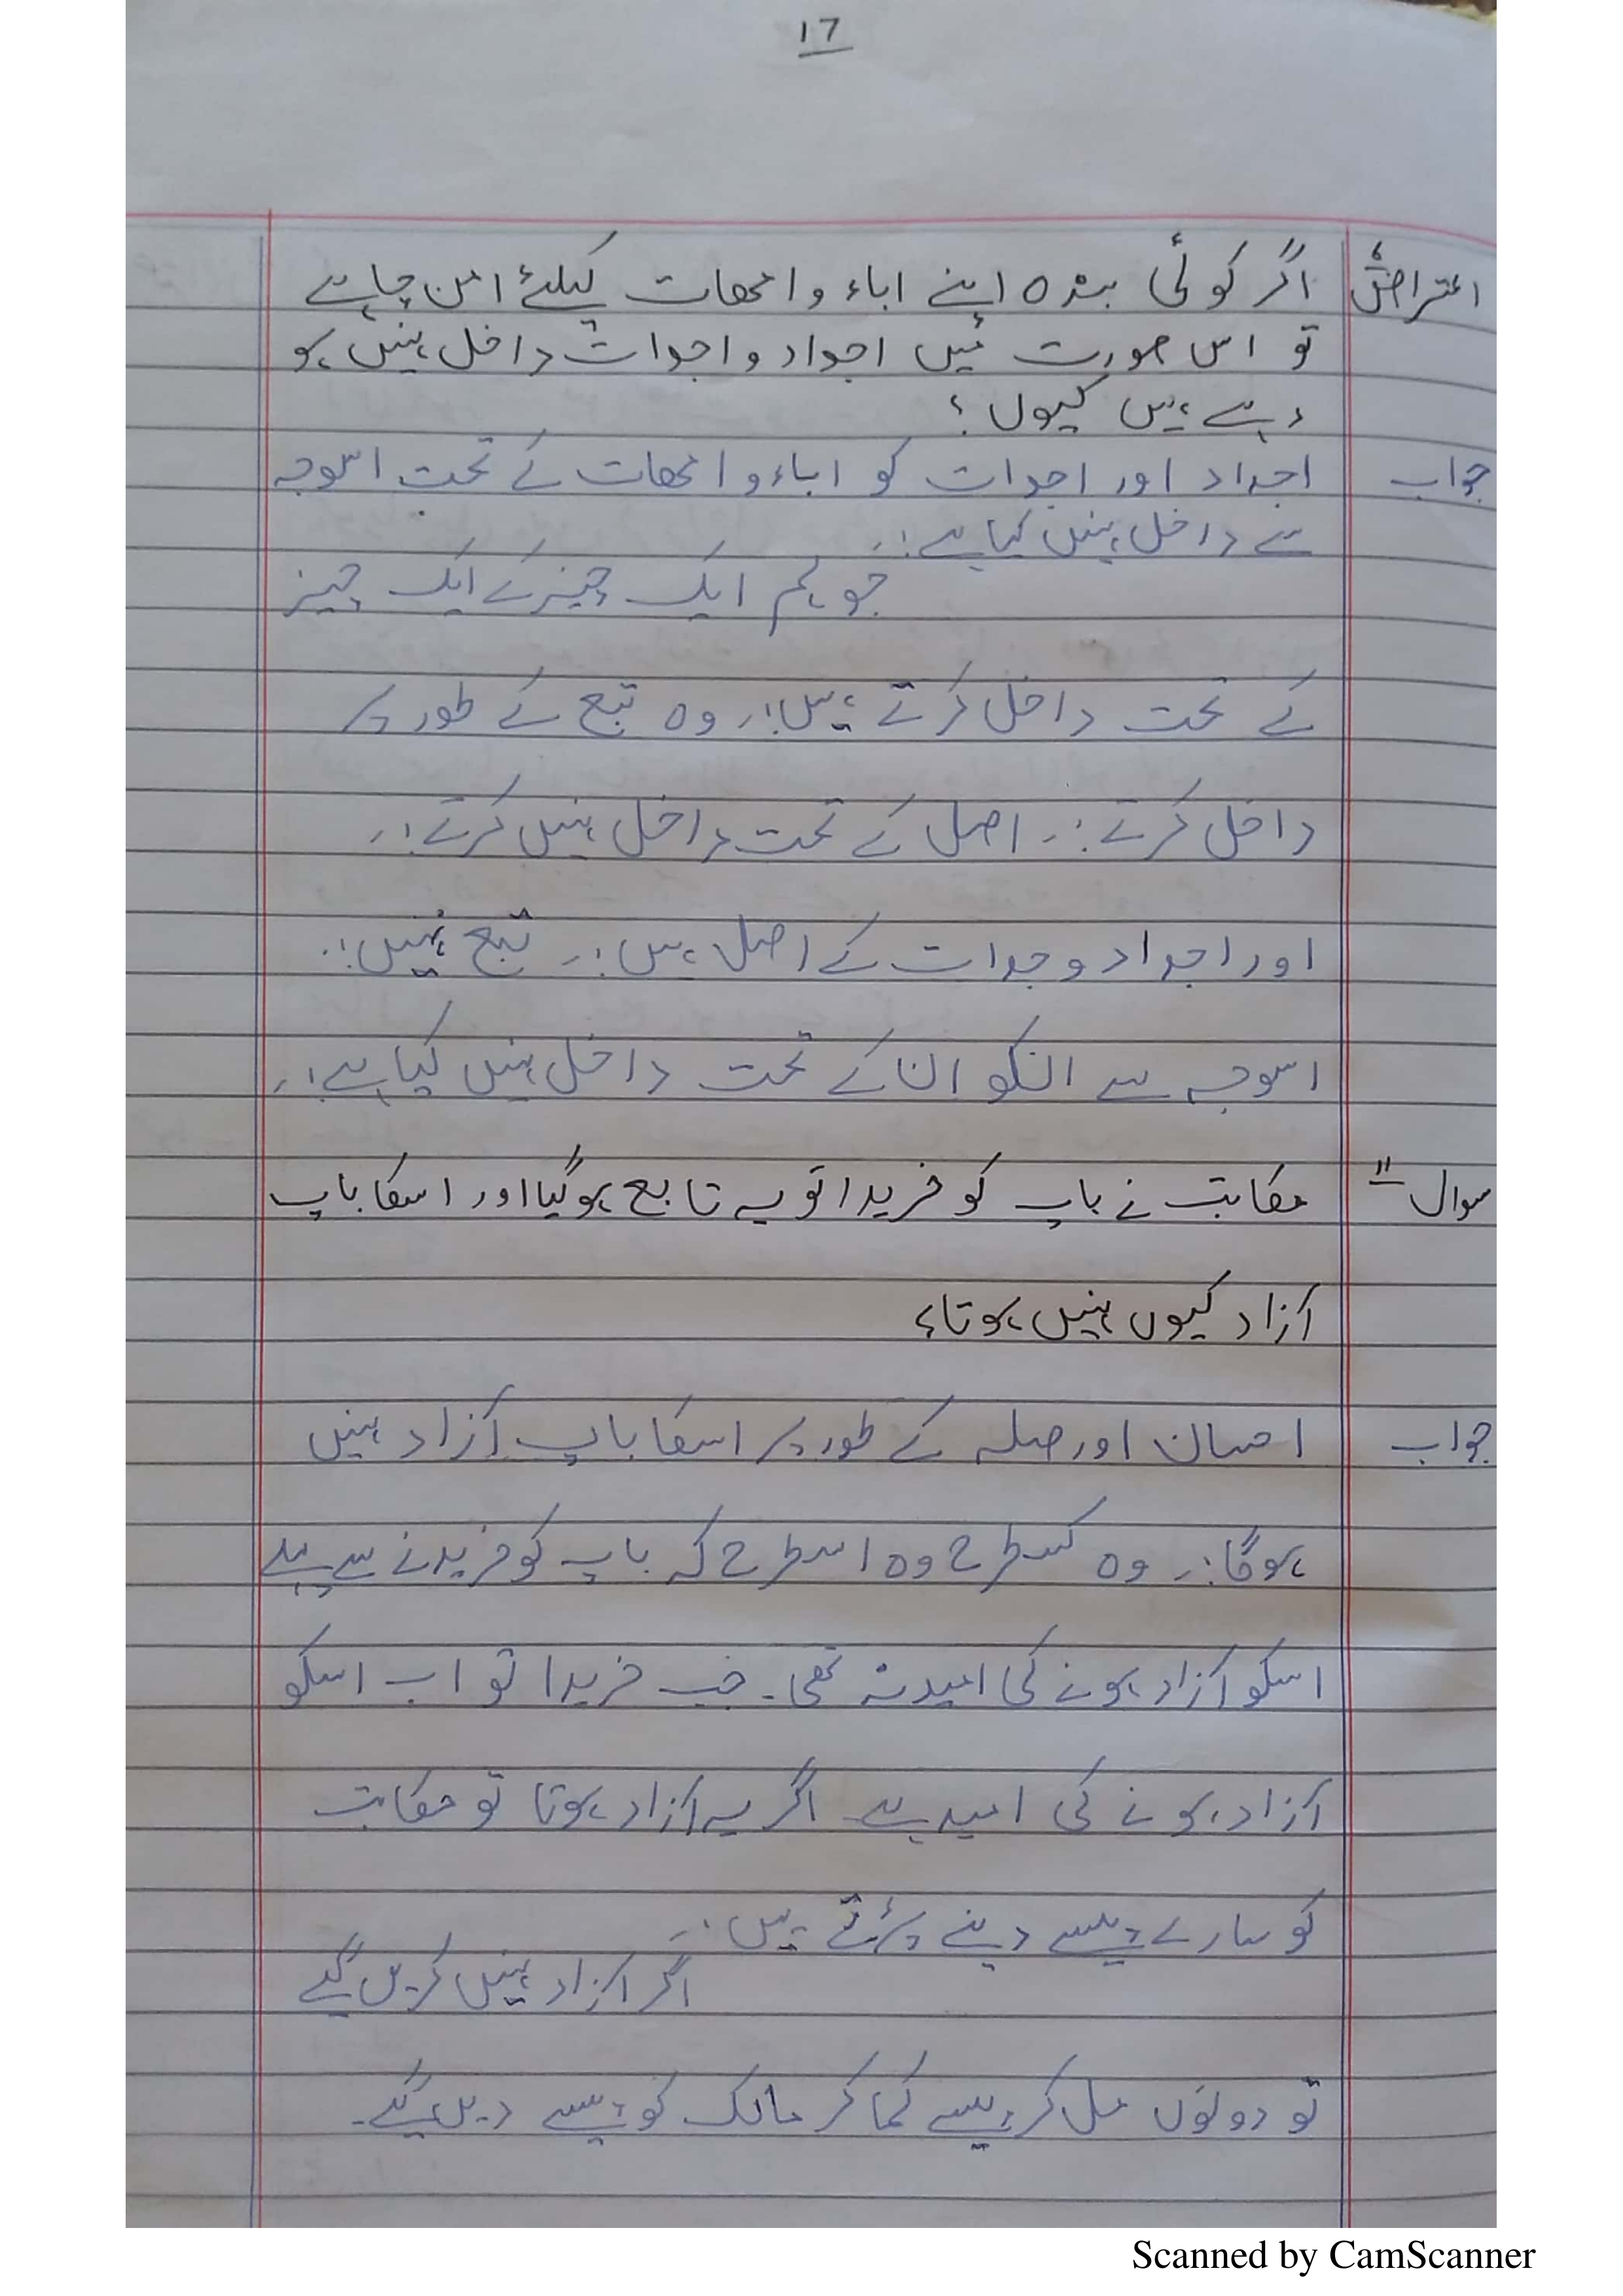 17
اعتراض اگر کوئی بندہ اپنے اباء و امھات کیلئے امن چاہے
تو اس صورت میں اجداد و اجدات داخل نہیں ہو
رہے ہیں کیوں؟
جواب اجداد اور اجدات کو اباء و امھات کے تحت اسوجہ
سے داخل نہیں کیا ہے:۔
جو ہم ایک چیز کے ایک چیز
کے تحت داخل کرتے ہیں:۔ وہ تبع کے طور پر
داخل کرتے:۔ اصل کے تحت داخل نہیں کرتے:۔
اور اجداد و جدات کے اصل ہیں:۔ تبع نہیں:۔
اسوجہ سے انکو ان کے تحت داخل نہیں کیا ہے:۔
سوال " مکاتب نے باپ کو خریدا تو یہ تابع ہوگیا اور اسکا باپ
آزاد کیوں نہیں ہوتا؟
جواب احسان اور صلہ کے طور پر اسکا باپ آزاد نہیں
ہوگا:۔ وہ کسطرح وہ اسطرح کہ باپ کو خریدنے سے پہلے
اسکو آزاد ہونے کی امید نہ تھی۔ جب خریدا تو اب اسکو
آزاد ہونے کی امید ہے اگر یہ آزاد ہوتا تو مکاتب
کو سارے پیسے دینے پڑتے ہیں:۔
اگر آزاد نہیں کریں گے
تو دونوں مل کر پیسے کما کر مالک کو پیسے دیں گے۔
Scanned by CamScanner